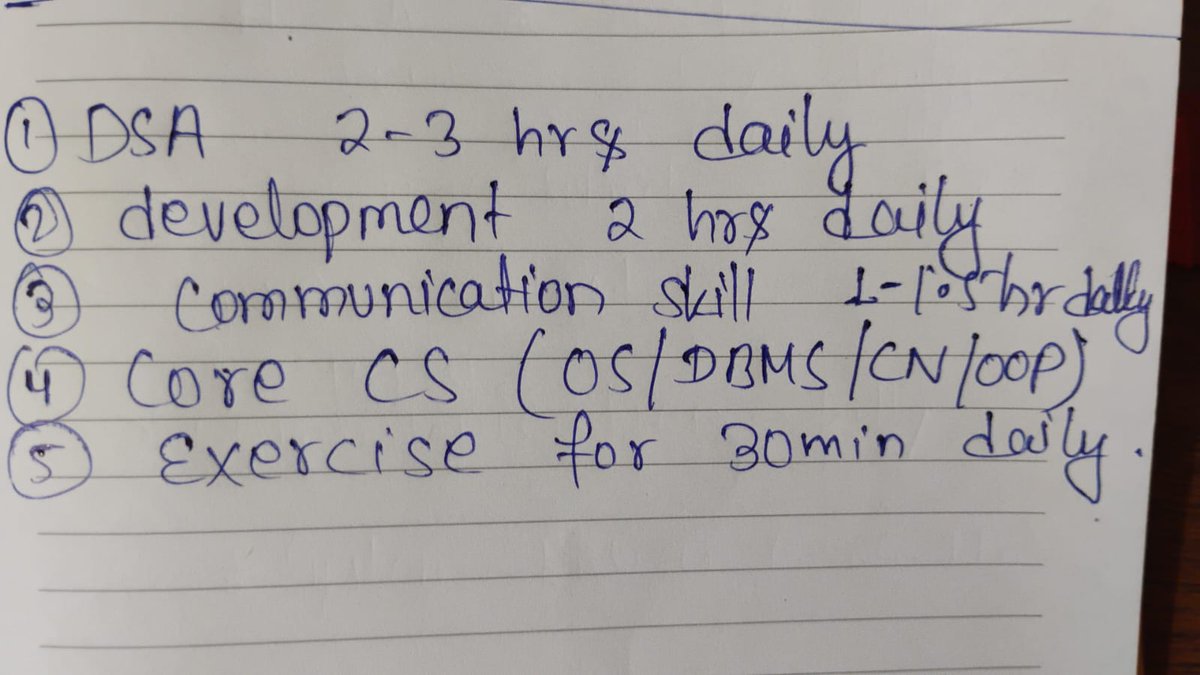 ① DSA 2-3 hrs daily
② development 2 hrs daily
③ Communication skill 1-1.5 hr daily
④ Core CS (OS/DBMS/CN/OOP)
⑤ Exercise for 30min daily.